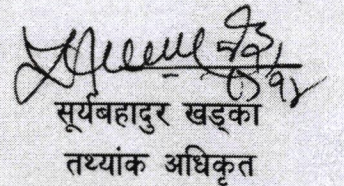 सूर्यबहादुर खड्का
तथ्यांक अधिकृत